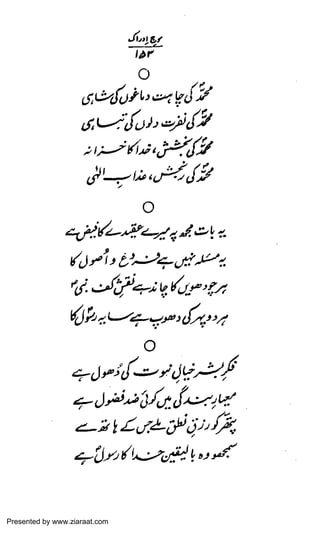 موجِ ادراک
۱۵۳
محمدؐ کی چاہت، دماغوں کی شاہی
محمدؐ کی نفرت، دلوں کی تباہی
محمدؐ کی بخشش، خدا کا خزانہ
محمدؐ کی رنجش، عذابِ الٰہی
یہ بات مجھ پہ میرے عقیدے کا فیض ہے
یہ مسئلہ نہیں ہے فروع و اُصول کا
ہر چودھویں کا چاند ہے نقشِ کفِ نبیؐ
ہر دوپہر کی دھوپ ہے سایہ رسولؐ کا
فکرِ بشر خیالِ نبوت کی دُھول ہے
معیارِ بندگی میں کوئی ضد فضول ہے
پتھر کو رزقِ نطق ملے جس کے ہاتھ سے
سمجھو وہ بالیقین خدا کا رسولؐ ہے
Presented by www.ziaraat.com